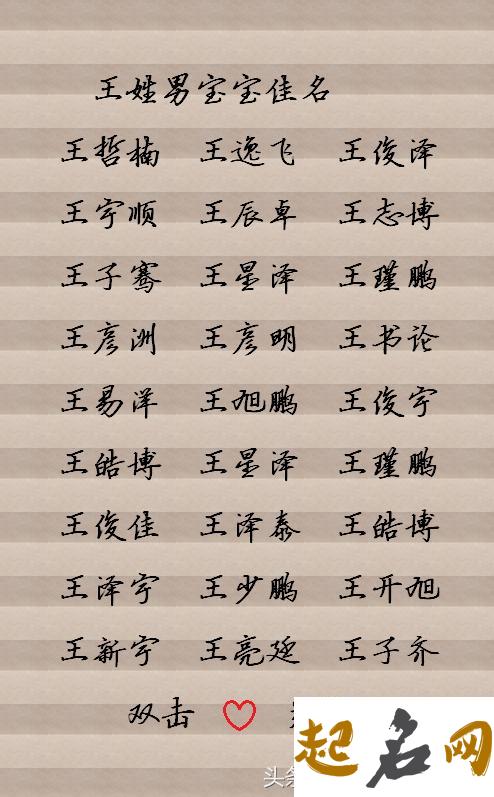 王姓男宝宝佳名
王哲楠 王逸飞 王俊泽
王宇顺 王辰卓 王志博
王子骞 王星泽 王瑾鹏
王彦洲 王彦明 王书论
王易洋 王旭鹏 王俊宇
王皓博 王星泽 王瑾鹏
王俊佳 王泽泰 王皓博
王泽宇 王少鹏 王开旭
王新宇 王亮延 王子齐
双击
起名网
头条